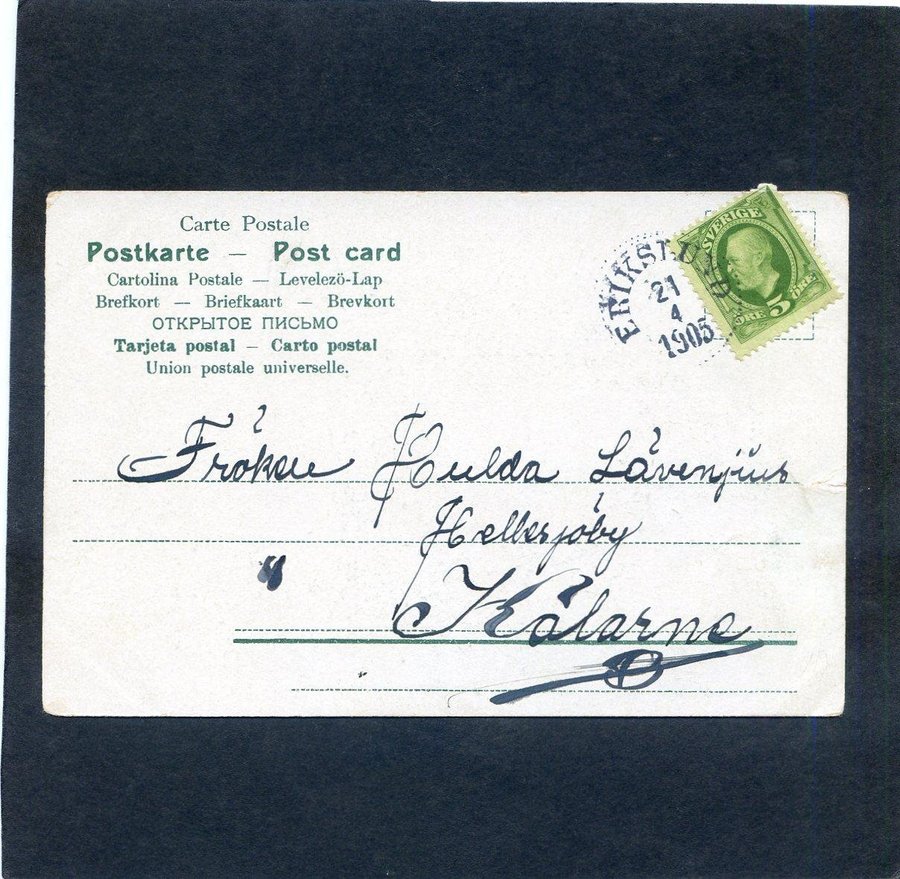 Carte Postale
Postkarte — Post card
Cartolina Postale — Levelezö-Lap
Brefkort — Briefkaart — Brevkort
ОТКРЫТОЕ ПИСЬМО
Tarjeta postal — Carto postal
Union postale universelle.
SVERIGE
ÖRE 5 ÖRE
21
4
1905
Fröken Hulda Lävenjüus
Hellesjöby
Kälarne